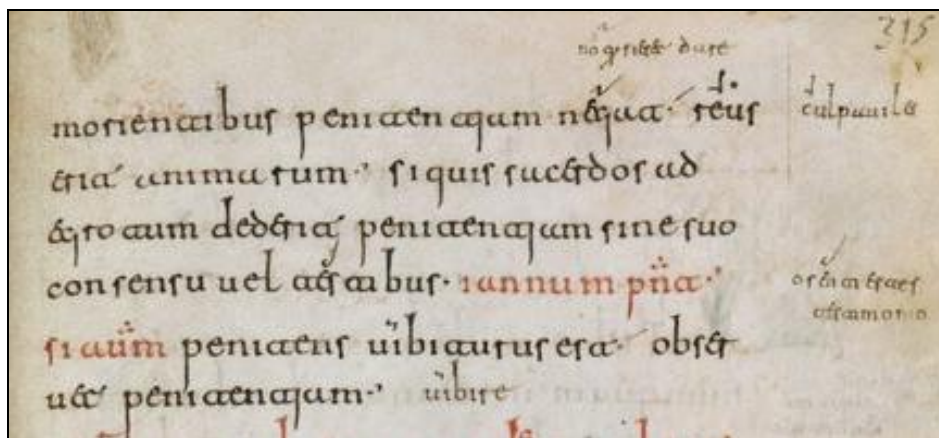 315
nō qsieret dare
morientibus penitentiam negat reus culpauile
erit animarum· si quis sacerdos ad
egrotum dederit penitentiam sine suo
consensu uel testibus· i annum pñt·
si aūm penitens uibiturus est obser
uet penitentiam· uibire